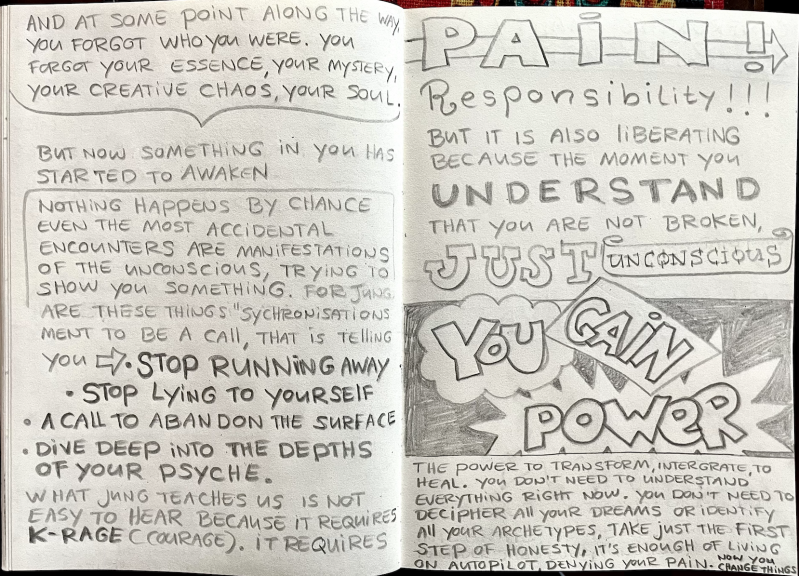 AND AT SOME POINT ALONG THE WAY,
YOU FORGOT WHO YOU WERE. YOU
FORGOT YOUR ESSENCE, YOUR MYSTERY,
YOUR CREATIVE CHAOS, YOUR SOUL.
BUT NOW SOMETHING IN YOU HAS
STARTED TO AWAKEN
NOTHING HAPPENS BY CHANCE
EVEN THE MOST ACCIDENTAL
ENCOUNTERS ARE MANIFESTATIONS
OF THE UNCONSCIOUS, TRYING TO
SHOW YOU SOMETHING. FOR JUNG
ARE THESE THINGS "SYCHRONISATIONS
MENT TO BE A CALL, THAT IS TELLING
YOU ⇨ • STOP RUNNING AWAY
• STOP LYING TO YOURSELF
• A CALL TO ABANDON THE SURFACE
• DIVE DEEP INTO THE DEPTHS
OF YOUR PSYCHE.
WHAT JUNG TEACHES US IS NOT
EASY TO HEAR BECAUSE IT REQUIRES
K-RAGE (COURAGE). IT REQUIRES
PAIN!
Responsibility!!!
BUT IT IS ALSO LIBERATING
BECAUSE THE MOMENT YOU
UNDERSTAND
THAT YOU ARE NOT BROKEN,
JUST UNCONSCIOUS
YOU GAIN
POWER
THE POWER TO TRANSFORM, INTERGRATE, TO
HEAL. YOU DON'T NEED TO UNDERSTAND
EVERYTHING RIGHT NOW. YOU DON'T NEED TO
DECIPHER ALL YOUR DREAMS OR IDENTIFY
ALL YOUR ARCHETYPES, TAKE JUST THE FIRST
STEP OF HONESTY, IT'S ENOUGH OF LIVING
ON AUTOPILOT, DENYING YOUR PAIN. NOW YOU
CHANGE THINGS